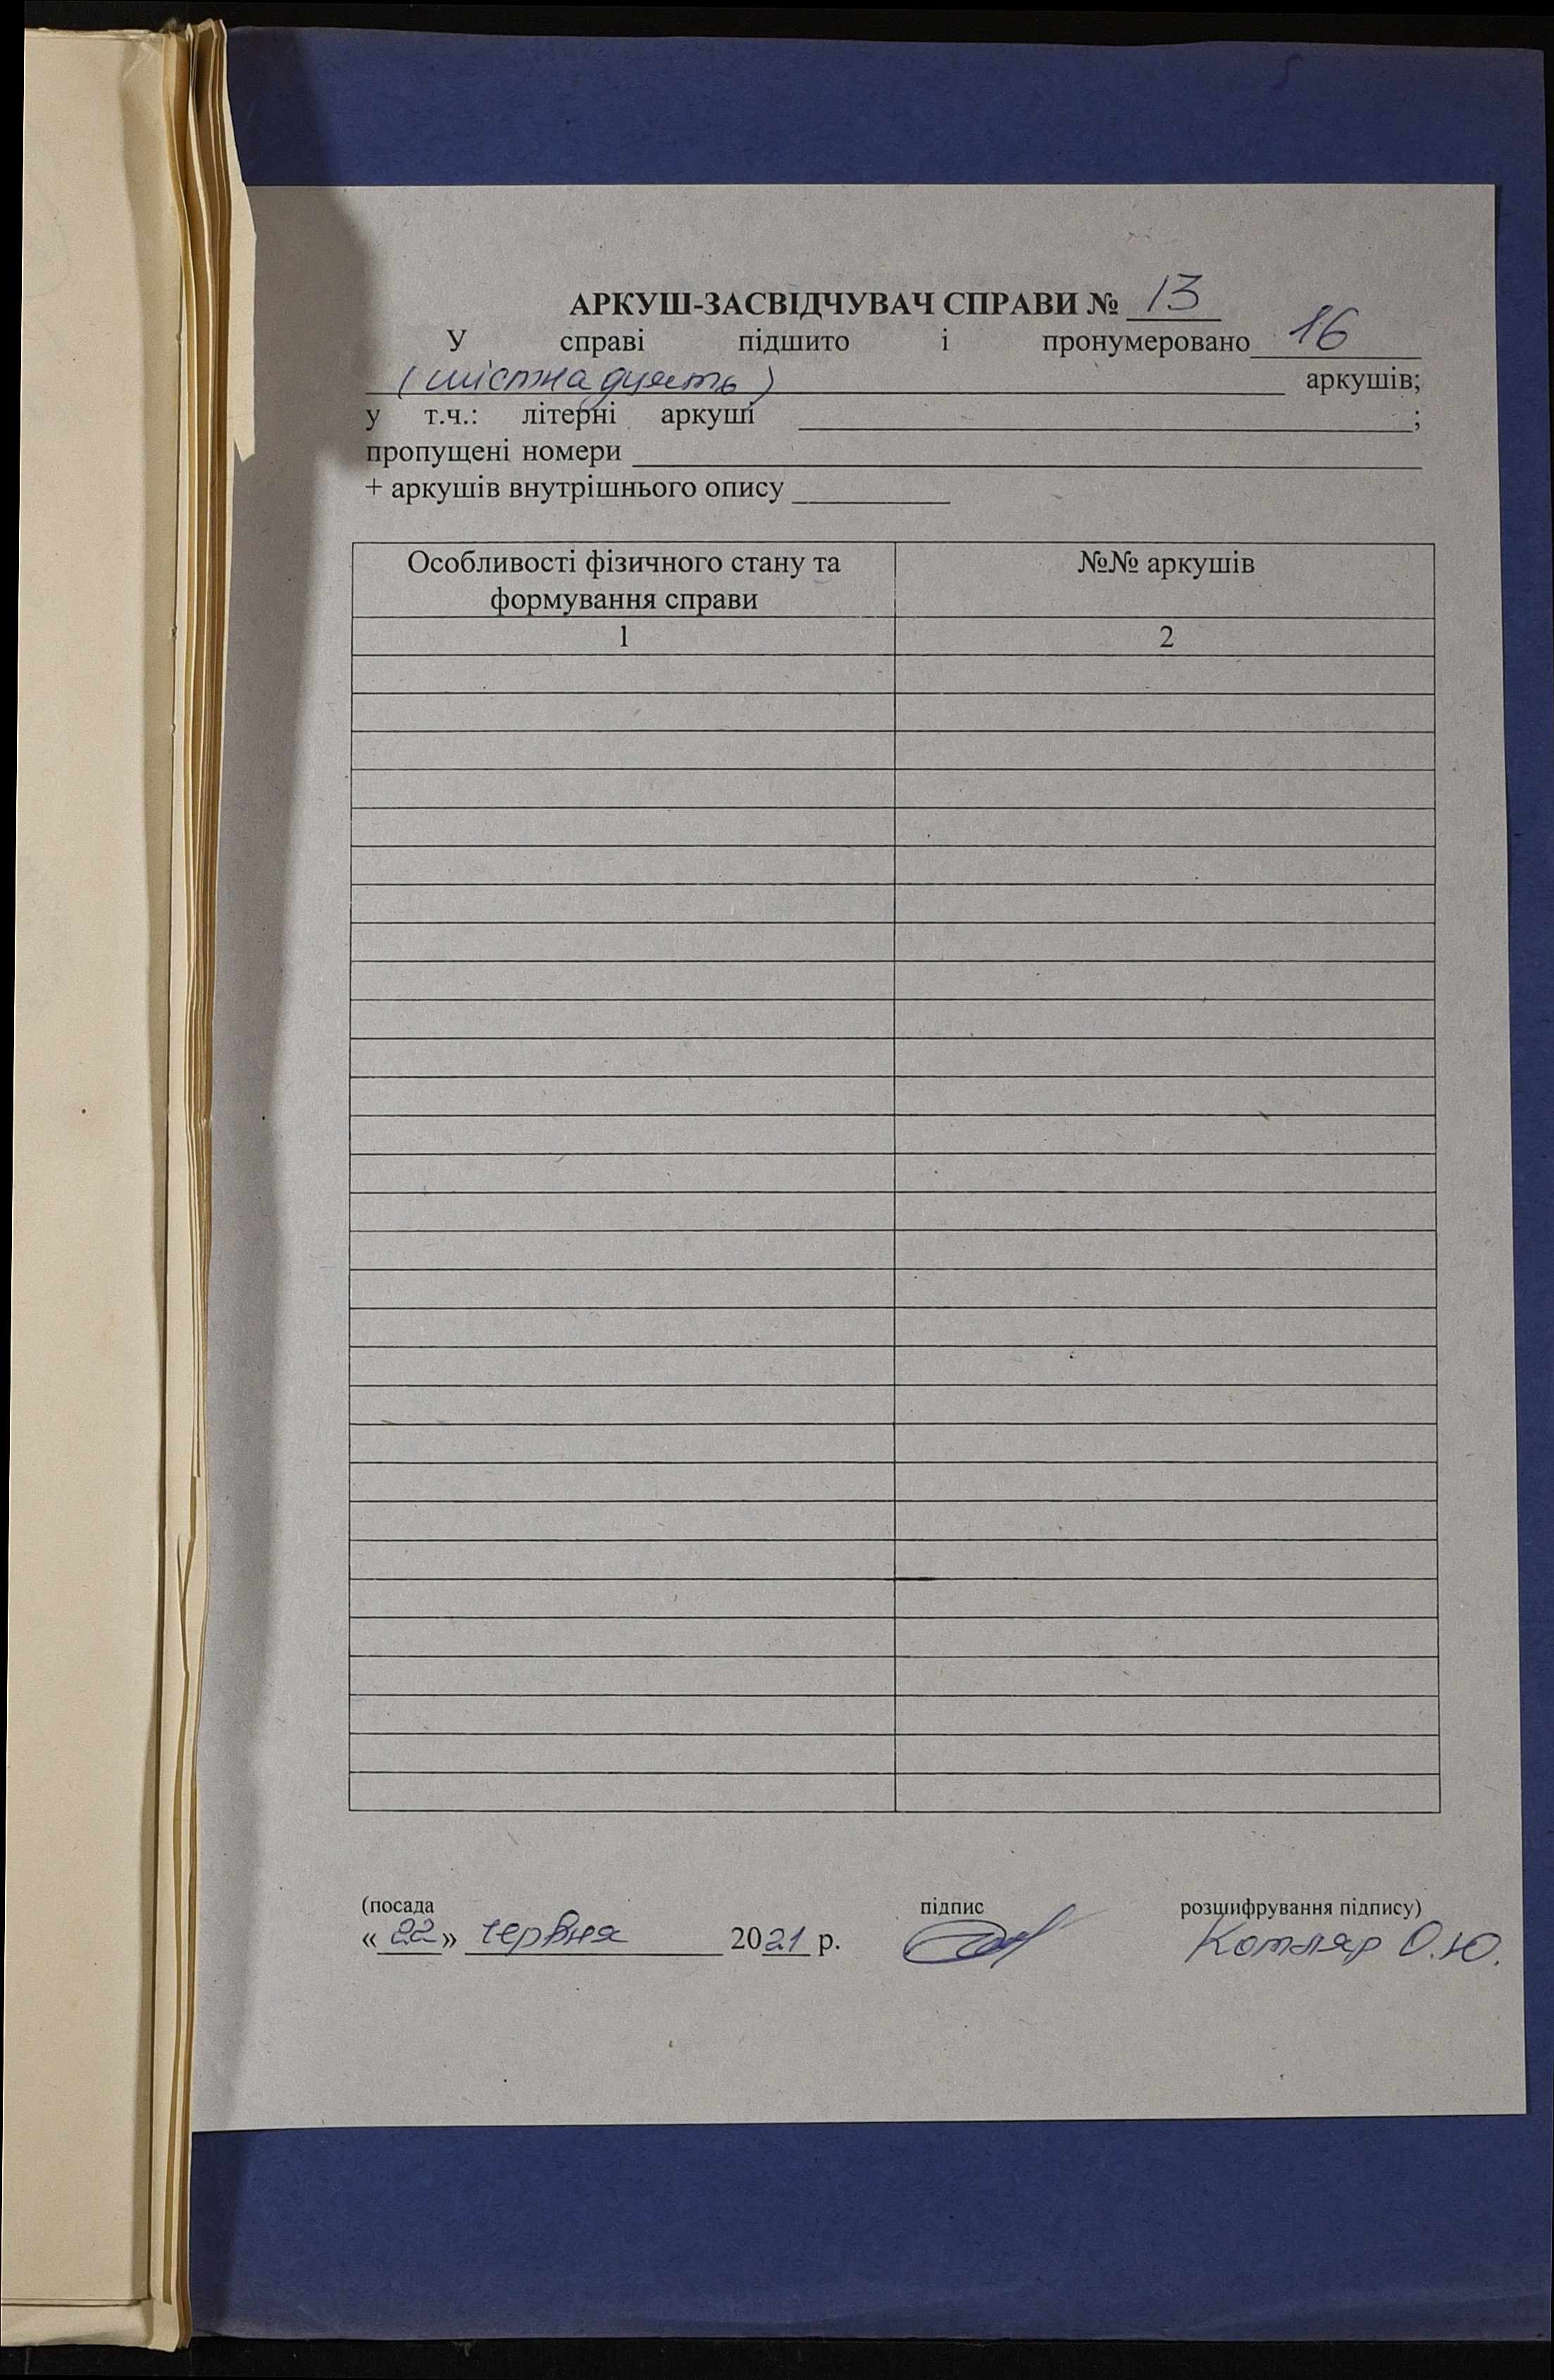 АРКУШ-ЗАСВІДЧУВАЧ СПРАВИ № 13
У справі підшито і пронумеровано 16
(шістнадцять) аркушів;
у т.ч.: літерні аркуші ;
пропущені номери
+ аркушів внутрішнього опису
Особливості фізичного стану та формування справи
№№ аркушів
1 2
(посада підпис розшифрування підпису)
«22» червня 2021 р. Котляр О.Ю.